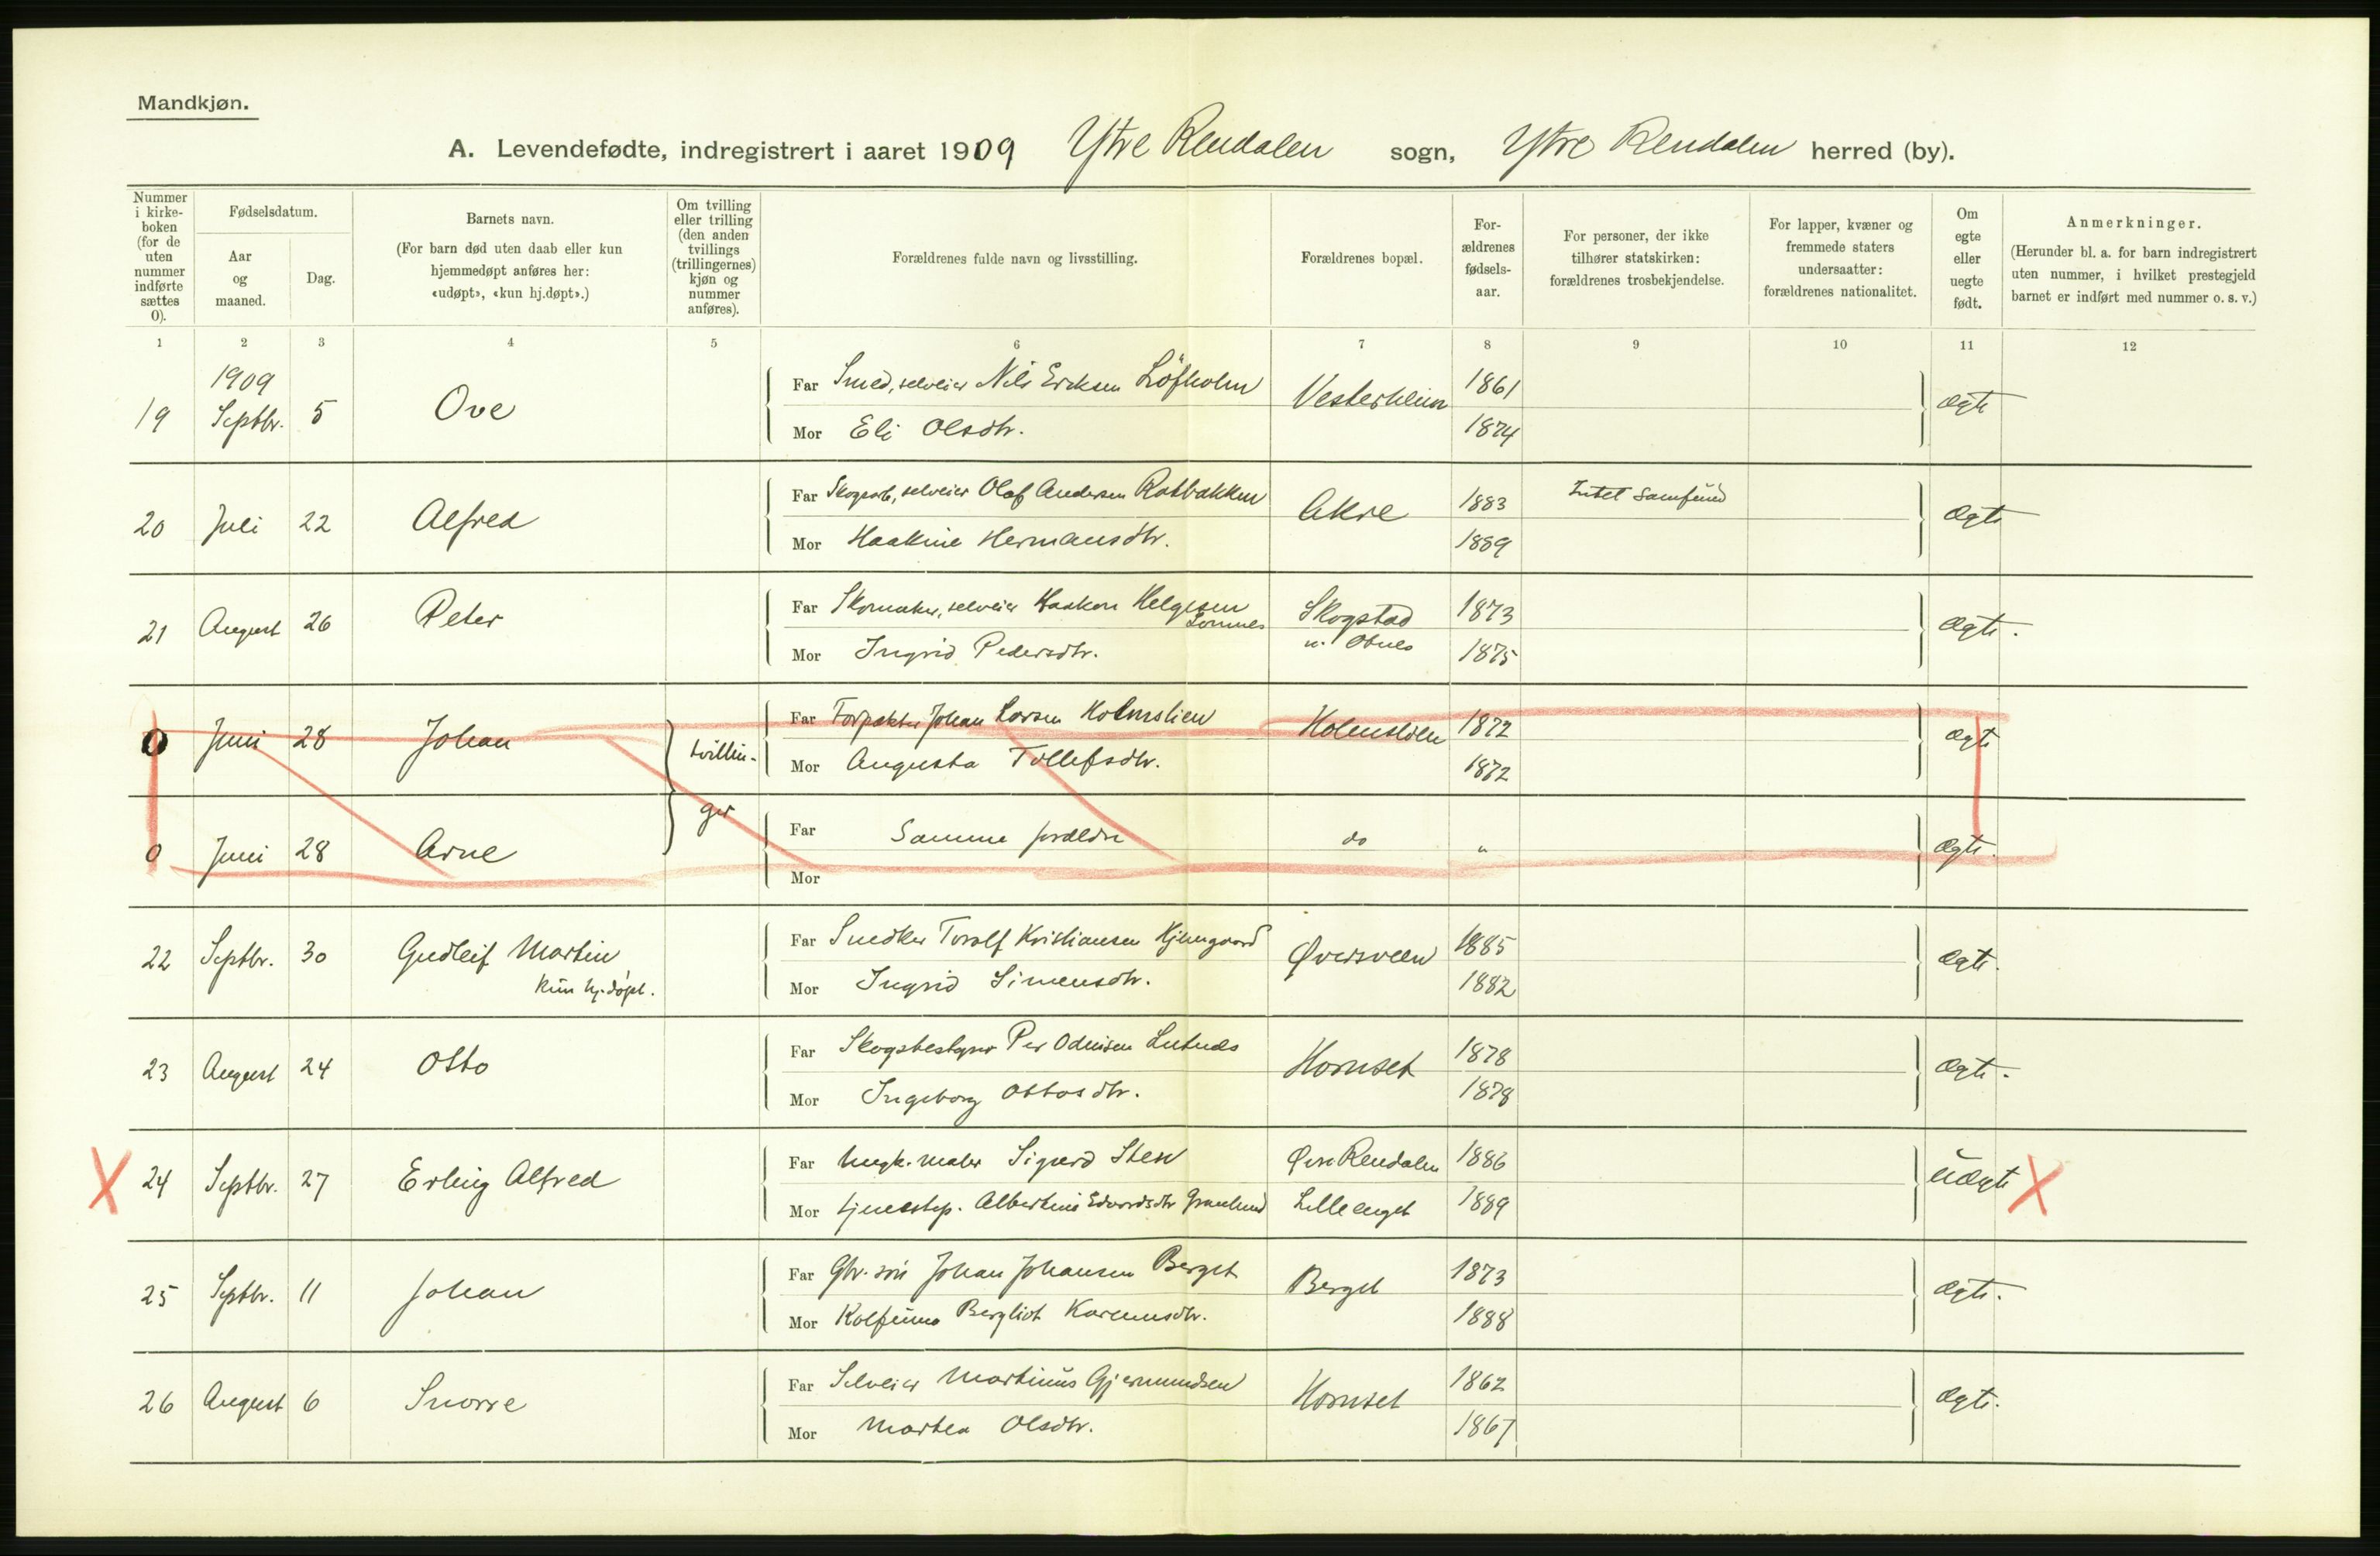 Mandkjøn.
A. Levendefødte, indregistrert i aaret 1909 Ytre Rendalen sogn, Ytre Rendalen herred (by).
Nummer i kirke- boken (for de uten nummer indførte sættes 0).
Fødselsdatum.
Aar og maaned.
Dag.
Barnets navn.
(For barn død uten daab eller kun hjemmedøpt anføres her: «udøpt», «kun hj.døpt».)
Om tvilling eller trilling (den anden tvillings (trillingernes) kjøn og nummer anføres).
Forældrenes fulde navn og livsstilling.
Forældrenes bopæl.
For- ældrenes fødsels- aar.
For personer, der ikke tilhører statskirken: forældrenes trosbekjendelse.
For lapper, kvæner og fremmede staters undersaatter: forældrenes nationalitet.
Om egte eller uegte født.
Anmerkninger.
(Herunder bl. a. for barn indregistrert uten nummer, i hvilket prestegjeld barnet er indført med nummer o. s. v.)
1 2 3 4 5 6 7 8 9 10 11 12
1909
19 Septbr. 5 Ove Far Smed, selveier Nils Eriksen Löfholm Vesterheim 1861 ægte
Mor Eli Olsdtr. 1874
20 Juli 22 Alfred Far Skogsarb., selveier Olaf Andersen Ratbakken Akre 1883 Intet samfund ægte
Mor Haakine Hermansdtr. 1889
21 August 26 Peter Far Skomaker, selveier Haakon Helgesen Lomnes Skogstad 1873 ægte.
Mor Ingrid Pedersdtr. u. Otnes 1875
0 Juni 28 Johan tvillin- Far Forpakter Johan Larsen Holmslien Holmslien 1872 ægte
Mor Augusta Tollefsdtr. 1872
0 Juni 28 Arne ger Far Samme forældre do " ægte.
Mor
22 Septbr. 30 Gudleif Martin Far Snedker Toralf Kristiansen Øversveen 1885 ægte.
kun hj.døpt. Mor Ingrid Simensdtr. 1882
23 August 24 Otto Far Skogsbestyrer Per Odinsen Lutnes Hornset 1878 ægte.
Mor Ingeborg Ottosdtr. 1878
X 24 Septbr. 27 Erling Alfred Far Ungk. maler Sigurd Sten Øvre Rendalen 1886 uægte X
Mor tjenestep. Albertine Edvardsdtr Granlund Lilleenget 1889
25 Septbr. 11 Johan Far Gbr. søn Johan Johansen Berget Berget 1873 ægte.
Mor Kolfinna Bergliot Karenusdtr. 1888
26 August 6 Snorre Far Selveier Martinus Gjermundsen Hornset 1862 ægte.
Mor Martea Olsdtr. 1867